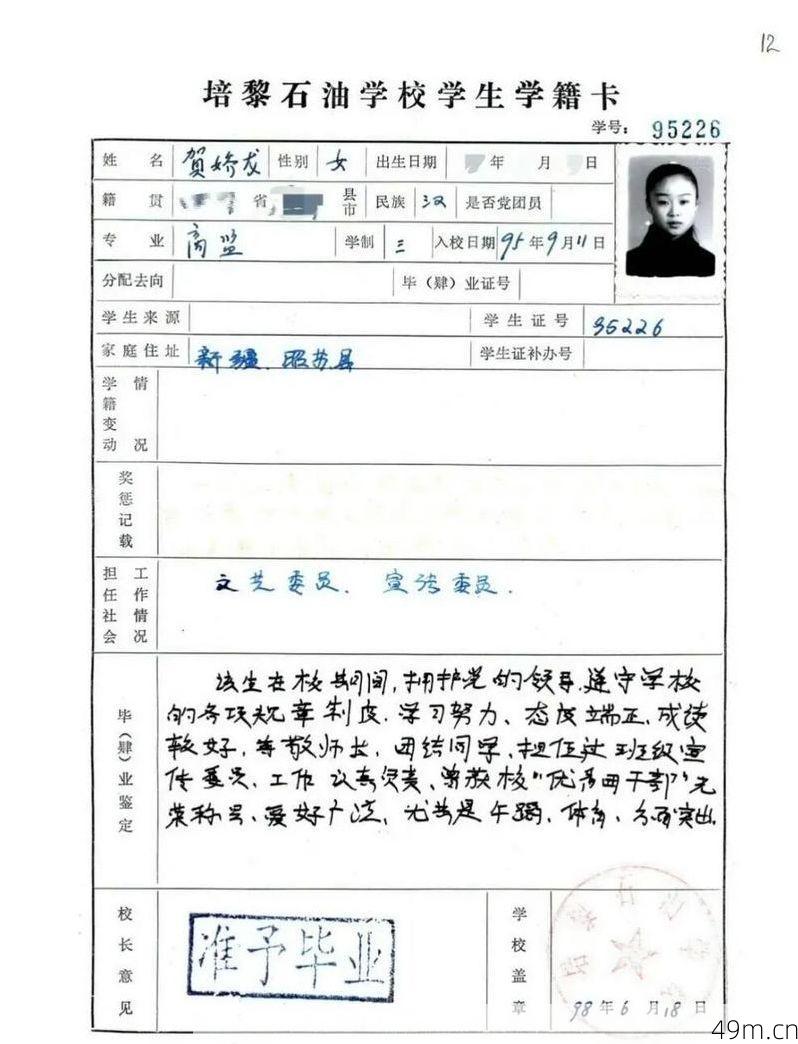 12
培黎石油学校学生学籍卡
学号：95226
姓名 贺娇龙 性别 女 出生日期 年 月 日
籍贯 省 县市 民族 汉 是否党团员
专业 商监 学制 三 入校日期 95年9月11日
分配去向 毕（肄）业证号
学生来源 学生证号 95226
家庭住址 新疆、昭苏县 学生证补办号
学籍变动情况
奖惩记载
担任社会工作情况 文艺委员、宣传委员.
毕（肄）业鉴定
该生在校期间，拥护党的领导，遵守学校
的各项规章制度，学习努力、态度端正，成绩
较好，尊敬师长，团结同学，担任过班级宣
传委员、工作认真负责，曾获校“优秀团干部”光
荣称号，爱好广泛，尤其是午蹈、体育，方面突出
校长意见 准予毕业 学校盖章
98年6月18日
49m.cn